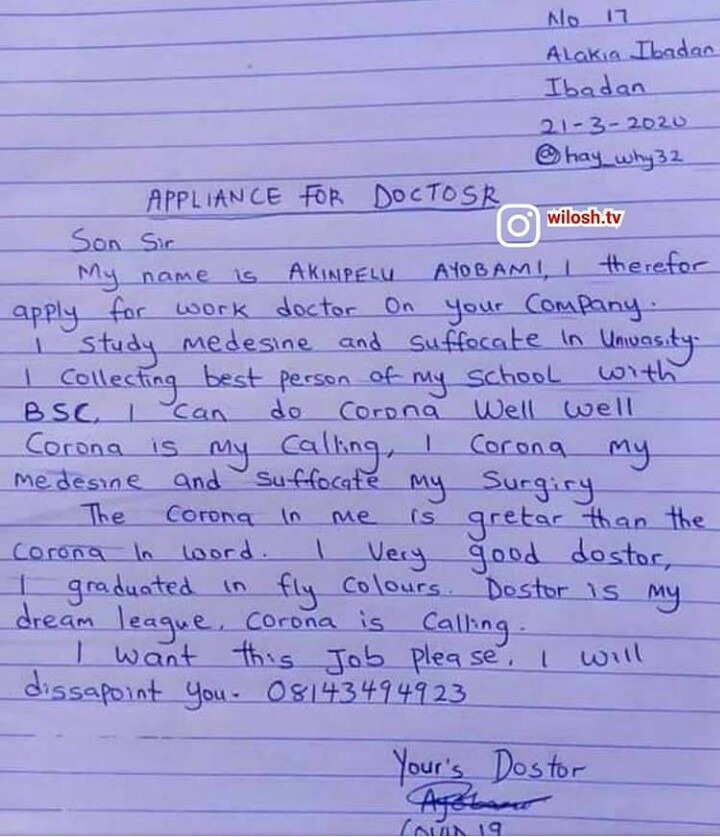 No 17
Alakia Ibadan
Ibadan
21-3-2020
@hay_why32
APPLIANCE FOR DOCTOSR
wilosh.tv
Son Sir
My name is AKINPELU AYOBAMI, I therefor
apply for work doctor on your company.
I study medesine and suffocate in Univasity.
I collecting best person of my school with
BSC, I can do corona well well
Corona is my calling, I corona my
medesine and suffocate my surgiry
The corona in me is gretar than the
corona in word. I very good dostor,
I graduated in fly colours. Dostor is my
dream league, corona is calling.
I want this Job please, I will
dissapoint you. 08143494923
Your's Dostor
COVID 19